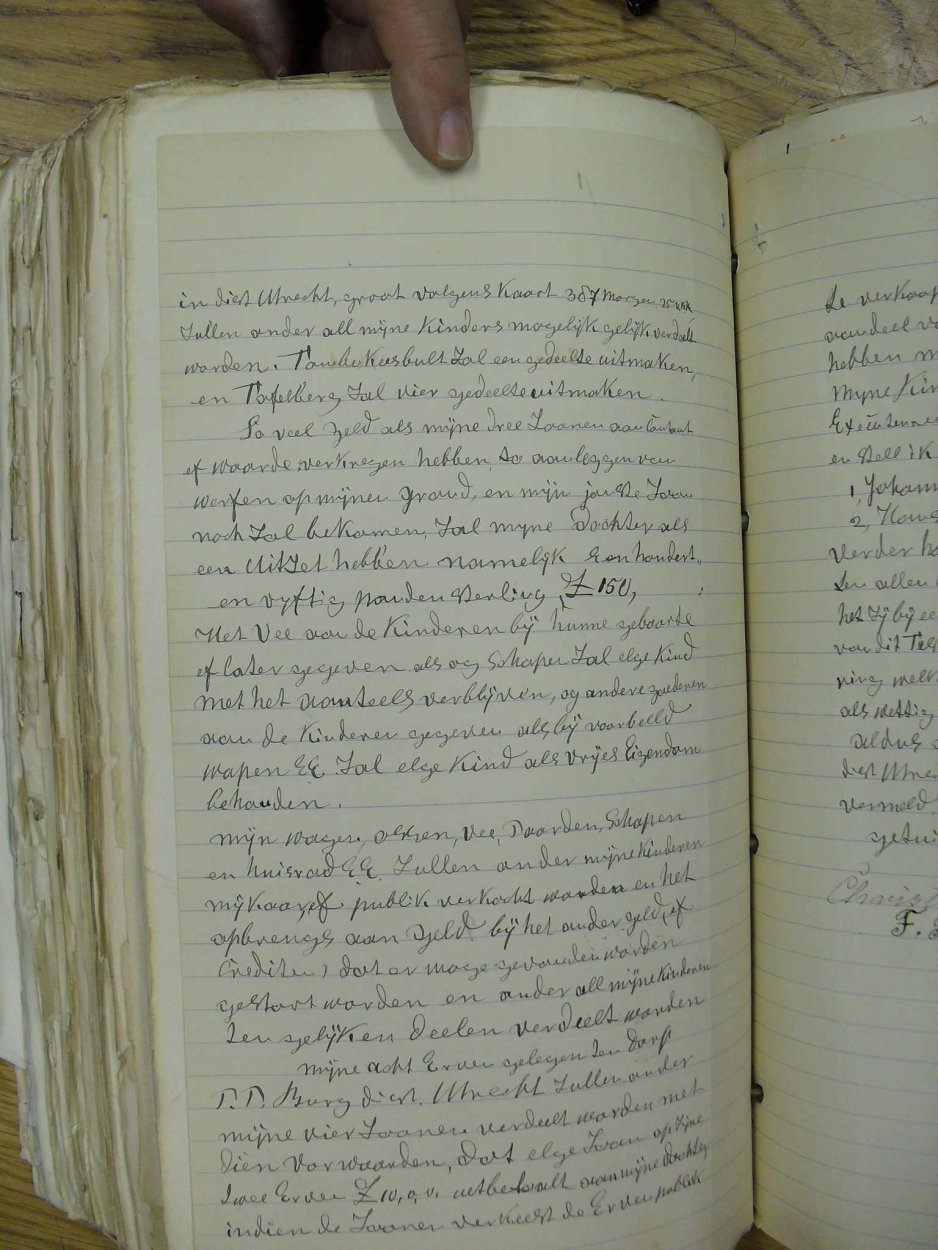 in dist Utrecht, groot volgens Kaart 387 Morgen
Zullen onder all mijne Kinders mogelijk gelijk verdeelt
worden. Zal een gedeelte uitmaken,
en Tafelberg Zal vier gedeelte uitmaken.
So veel geld als mijne dree Zoonen aan Contant
of waarde verkregen hebben, to aanleggen van
werfen op mijnen grond, en mijn jonste Zoon
noch Zal bekomen, Zal myne Dochter als
een UitZet hebben namelijk Een hondert
en vyftig ponden Sterling £ 150,
Het Vee aan de Kinderen bij hunne geboorte
of later gegeven als og Schapen Zal elge Kind
met het aanteels verblijven, og andere goederen
aan de Kinderen gegeven als bij voorbeeld
wapen EE. Zal elge Kind als vrijes Eigendom
behouden.
mijn wagen, oksen, vee, Paarden, Schapen
en huisrad EE. Zullen onder mijne Kinderen
publik verkocht worden en het
opbrengs aan geld bij het ander geld, of
Crediten, dat er moge gevonden worden
gestort worden en onder all mijne Kinderen
Zen gelijken deelen verdeelt worden
mijne acht Erven gelegen Zen dorp
P.P. Burg dist. Utrecht Zullen onder
mijne vier Zoonen verdeelt worden met
dien Vorwaarden, dat elge Zoon op Zijne
twee Erven £ 10,0,0. uitbetaalt aan mijne dochter
indien de Zoonen verkeest de Erven publik
de verkoop
aandeel
hebben
Myne Kin
en Stell ik
1, Johann
2,
verder
den allen
van dit
als wettig
aldus
dist Utre
vermeld
getui
Christ
F.